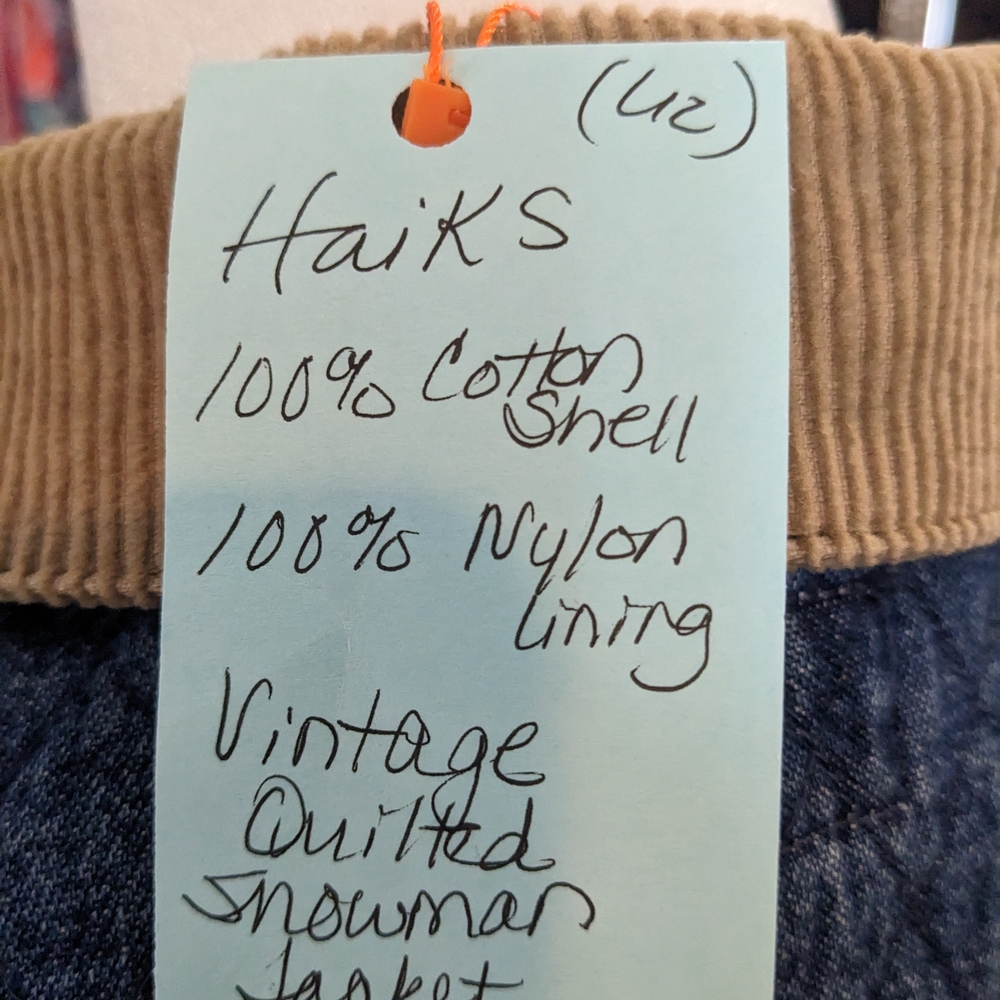 (42)
Haiks
100% Cotton
Shell
100% Nylon
lining
Vintage
Quilted
Snowman
Jacket